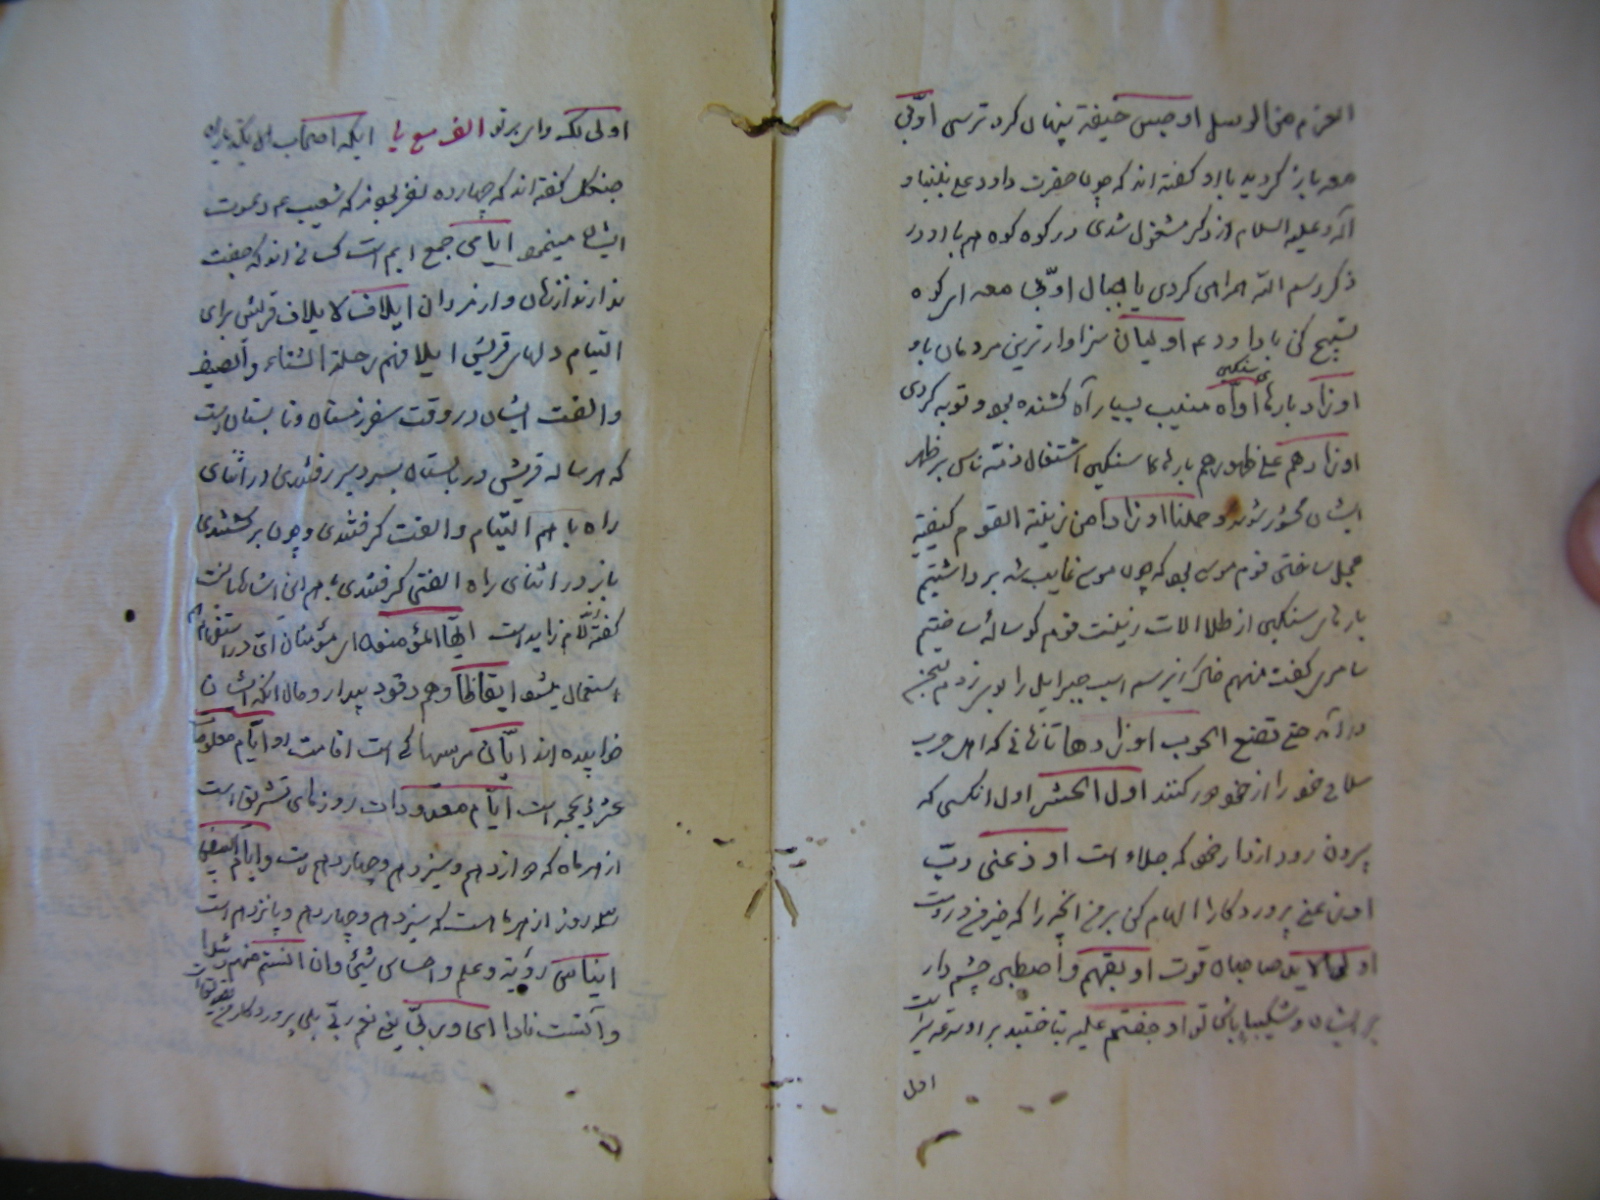 العزم من الرسل اوجس خیفة پنهان کرد ترسی اوّبی
معه باز کردید با او کفته اند که چون حضرت داود علی نبینا و
آله و علیه السلام از ذکر مشغول شدی در کوه کوه هم با او در
ذکر و سم الله همراهی کردی یا جبال اوّبی معه ای کوه
تسبیح کن با داود عم اولیان سزاوارترین مردمان باو
اوزار بارها اوّاه منیب بسیار آه کشنده بود و توبه کردی
سنکین
اوزارهم علی ظهورهم بارها سنکین بر ظهر
ایشان و حملنا اوزارا من زینة القوم کیفیة
عجل ساختن قوم موسی بود که چون موسی غایب شد برداشتیم
بارهای سنکین از طلا آلات زینت قوم کوساله ساختیم
سامری کفت منهم خاک از سم اسب جبرایل را
درآمد حتی تضع الحرب اوزارها تا زمانی که اهل حرب
سلاح خود را از خود دور کنند اول الحشر اول انکسی که
بیرون رود از دار خود که جلاء است اوزعنی ربّ
اوزعنی پرورد کارا الهام کن بر من انچه را که خیر من در وست
اولی الاید صاحبان قوت اوبقهم و اصطبر چشم دار
بر ایشان و شکیبا باش اوجفتم علیه بتاختید بر او
اول
اولی لک وای بر تو الف مع یا ایکه اصحاب الایکه یاران
جنکل کفته اند که چهارده نفر بودند که شعیب عم دعوت
ایشان مینمود ایامی جمع ایم است کسانی اند که جفت
ندارند از زنان و از مردان ایلاف لایلاف قریش برای
التیام دلهای قریش ایلافهم رحلة الشتاء والصیف
والفت ایشان در وقت سفر زمستان و تابستان است
که هر ساله قریش در تابستان بسردسیر رفتندی در اثنای
راه با هم التیام و الفت کرفتندی و چون برکشتندی
باز در اثنای راه الفتی کرفتندی
کفته اند لام زایده است ایّها المؤمنون ای مؤمنان ایّ در استفهام
استعمال میشود ایقاظا وهم رقود بیدار و حال آنکه ایشان
خوابیده اند ایّان مرسیها کی است اقامت او ایّام معلومات
عشر ذیحجه است ایّام معدودات روزهای تشریق است
از هر ماه که دوازدهم و سیزدهم و چهاردهم است و ایّام البیض
سه روز از هر ماه است که سیزدهم و چهاردهم و پانزدهم است
ایناس رؤیة و علم و احساس شیئ وان انستم منهم رشدا
و آنست نارا ای وربّی یعنی نعم ربّی بلی پروردکار من